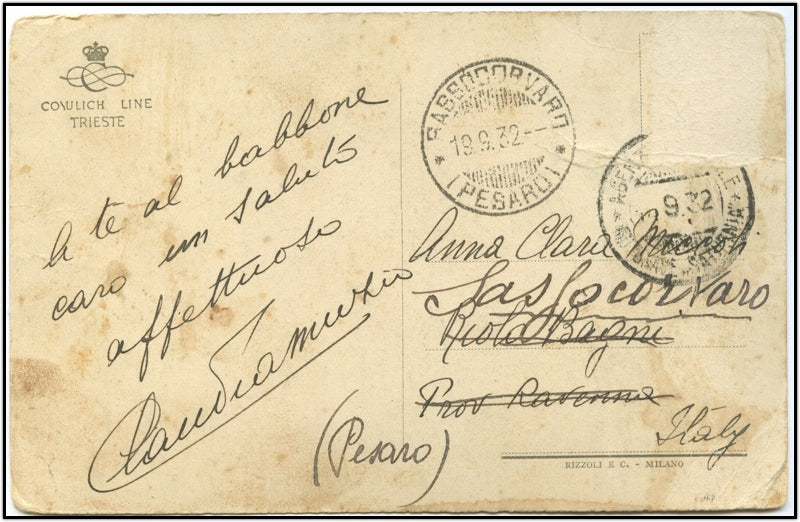 COSULICH LINE
TRIESTE
A te al babbone
caro un saluto
affettuoso
Claudia Muzio
SASSOCORVARO
19.9.32
(PESARO)
9.32
Anna Clara
Sassocorvaro
Riolo Bagni
Prov Ravenna
(Pesaro)
Italy
RIZZOLI E C. - MILANO